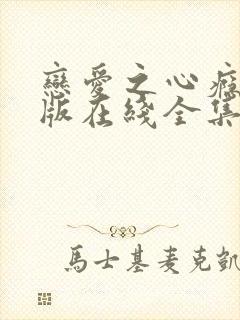 戀愛之心癮
版在綫全集
馬士基麥克凱